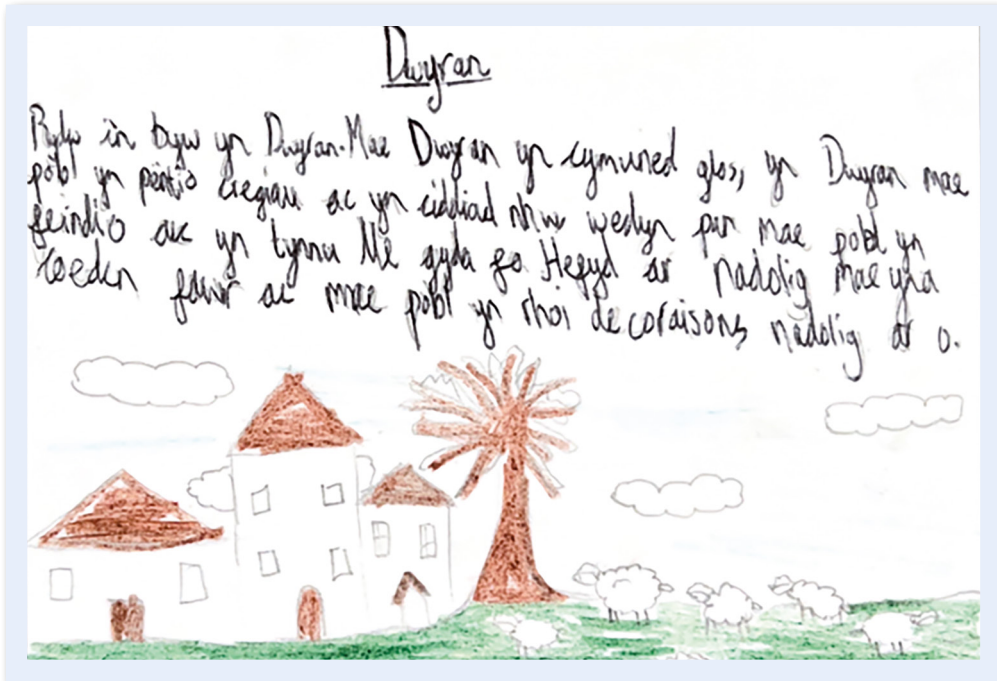 Dwyran
Rydw i'n byw yn Dwyran. Mae Dwyran yn cymuned glos, yn Dwyran mae
pobl yn pentio cregiau ac yn ciddiad nhw wedyn pan mae pobl yn
feindio ac yn tynnu lle gyda fo Hefyd ar nadolig mae yna
coeden fawr ac mae pobl yn rhoi decoraisons nadolig ar o.